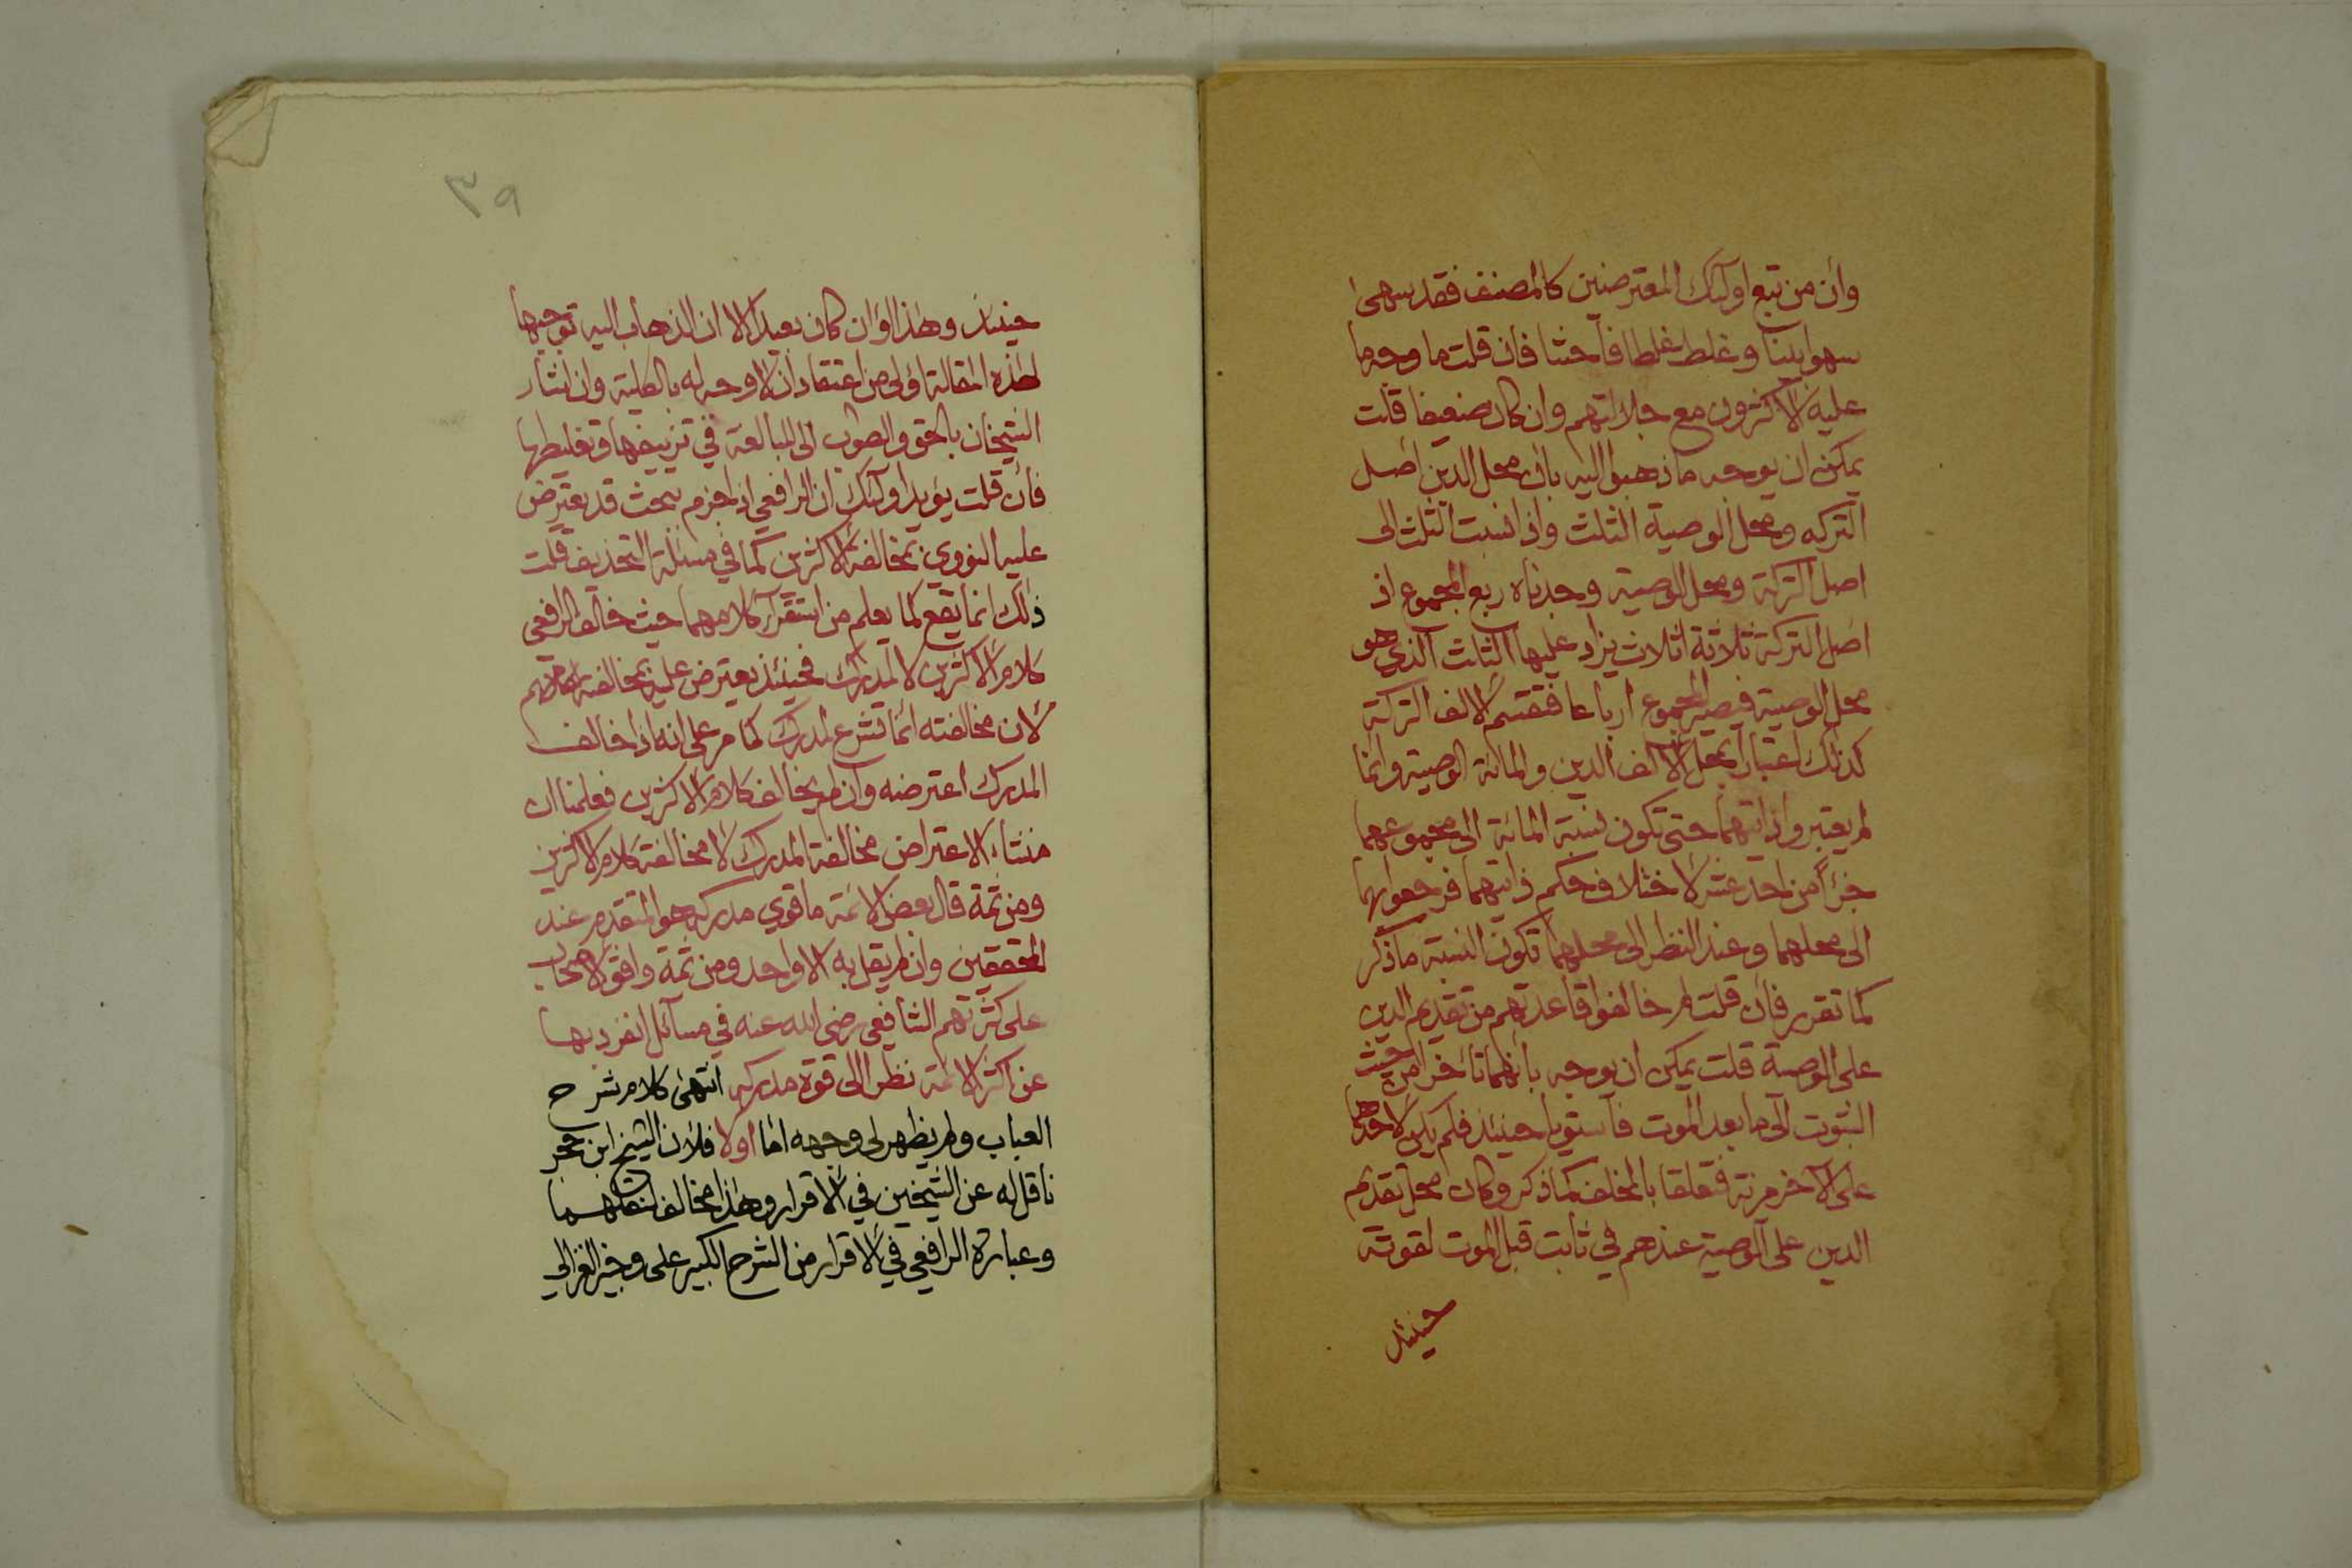 وان من تبع اولئك المعترضين كالمصنف فقد سهى
سهوا بينا وغلط غلطا فاحشا فان قلت ما وجه ما
عليه الاكثرون مع جلالتهم وان كان ضعيفا قلت
يمكن ان يوجه ما ذهبوا اليه بان محل الدين اصل
التركه ومحل الوصية الثلث واذا نسبت الثلث الى
اصل التركة ومحل الوصية وجدناه ربع المجموع اذ
اصل التركة ثلاثة اثلاث يزاد عليها الثلث الذي هو
محل الوصية فيصير المجموع ارباعا فتقسم الالف التركة
كذلك اعتبارا بمحل الالف الدين والمائة الوصية وانما
لم يعتبروا ذاتهما حتى تكون نسبة المائة الى مجموعهما
جزأ من احد عشر لاختلاف حكم ذاتيهما فرجعوا بهما
الى محلهما وعند النظر الى محلهما تكون النسبة ما ذكر
كما تقرر فان قلت لم خالفوا قاعدتهم من تقديم الدين
على الوصية قلت يمكن ان يوجه بانهما تأخرا من حيث
الثبوت الى ما بعد الموت فاستويا حينئذ فلم يكن لاحدهما
على الاخر مزية فتعلقا بالمخلف كما ذكر وكان محل تقديم
الدين على الوصية عندهم في ثابت قبل الموت لقوته
حينئذ
٣٩
حينئذ وهذا وان كان بعيدا الا ان الذهاب اليه توجيها
لهذه المقالة اولى من اعتقاد ان لا وجه له بالكلية وان اشار
الشيخان بالحق والصواب الى المبالغة في تزييفها وتغليطها
فان قلت يؤيد اولئك ان الرافعي اذا جزم ببحث قد يعترض
عليه النووي بمخالفة الاكثرين كما في مسئلة التحذيف قلت
ذلك انما يقع كما يعلم من استقرآء كلامهما حيث خالف الرافعي
كلام الاكثرين لا لمدرك فحينئذ يعترض عليه بمخالفة كلامهم
لان مخالفته انما تشرع لمدرك كما مر على انه اذا خالف
المدرك اعترضه وان لم يخالف كلام الاكثرين فعلمنا ان
منشاء الاعتراض مخالفة المدرك لا مخالفة كلام الاكثرين
ومن ثمة قال بعض الائمة ما قوي مدركه هو المتقدم عند
المحققين وان لم يقل به الا واحد ومن ثمة وافق الاصحاب
على كثرتهم الشافعي رضى الله عنه في مسآئل انفرد بها
عن اكثر الائمة نظرا الى قوة مدركه انتهى كلام شرح
العباب ولم يظهر لى وجهه اما اولا فلان الشيخ ابن حجر
ناقل له عن الشيخين في الاقرار وهذا مخالف لنقلهما
وعبارة الرافعي في الاقرار من الشرح الكبير على وجيز الغزالي